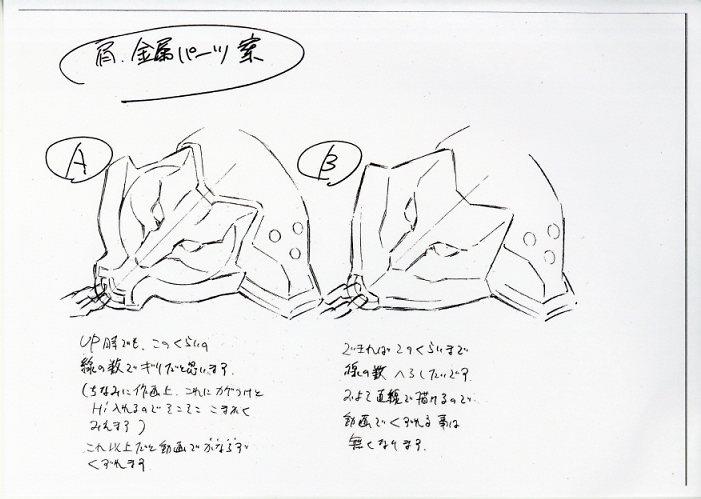 肩.金属パーツ案
A
B
UP時でも、このくらいの
線の数でギリだと思います.
(ちなみに作画上、これにカゲつけと
Hi入れるのでそこそこ こまかく
みえます)
これ以上だと動画でかならず
くずれます.
できればこのくらいまで
線の数 へらしたいです.
およそ直線で描けるので.
動画でくずれる事は
無くなります.